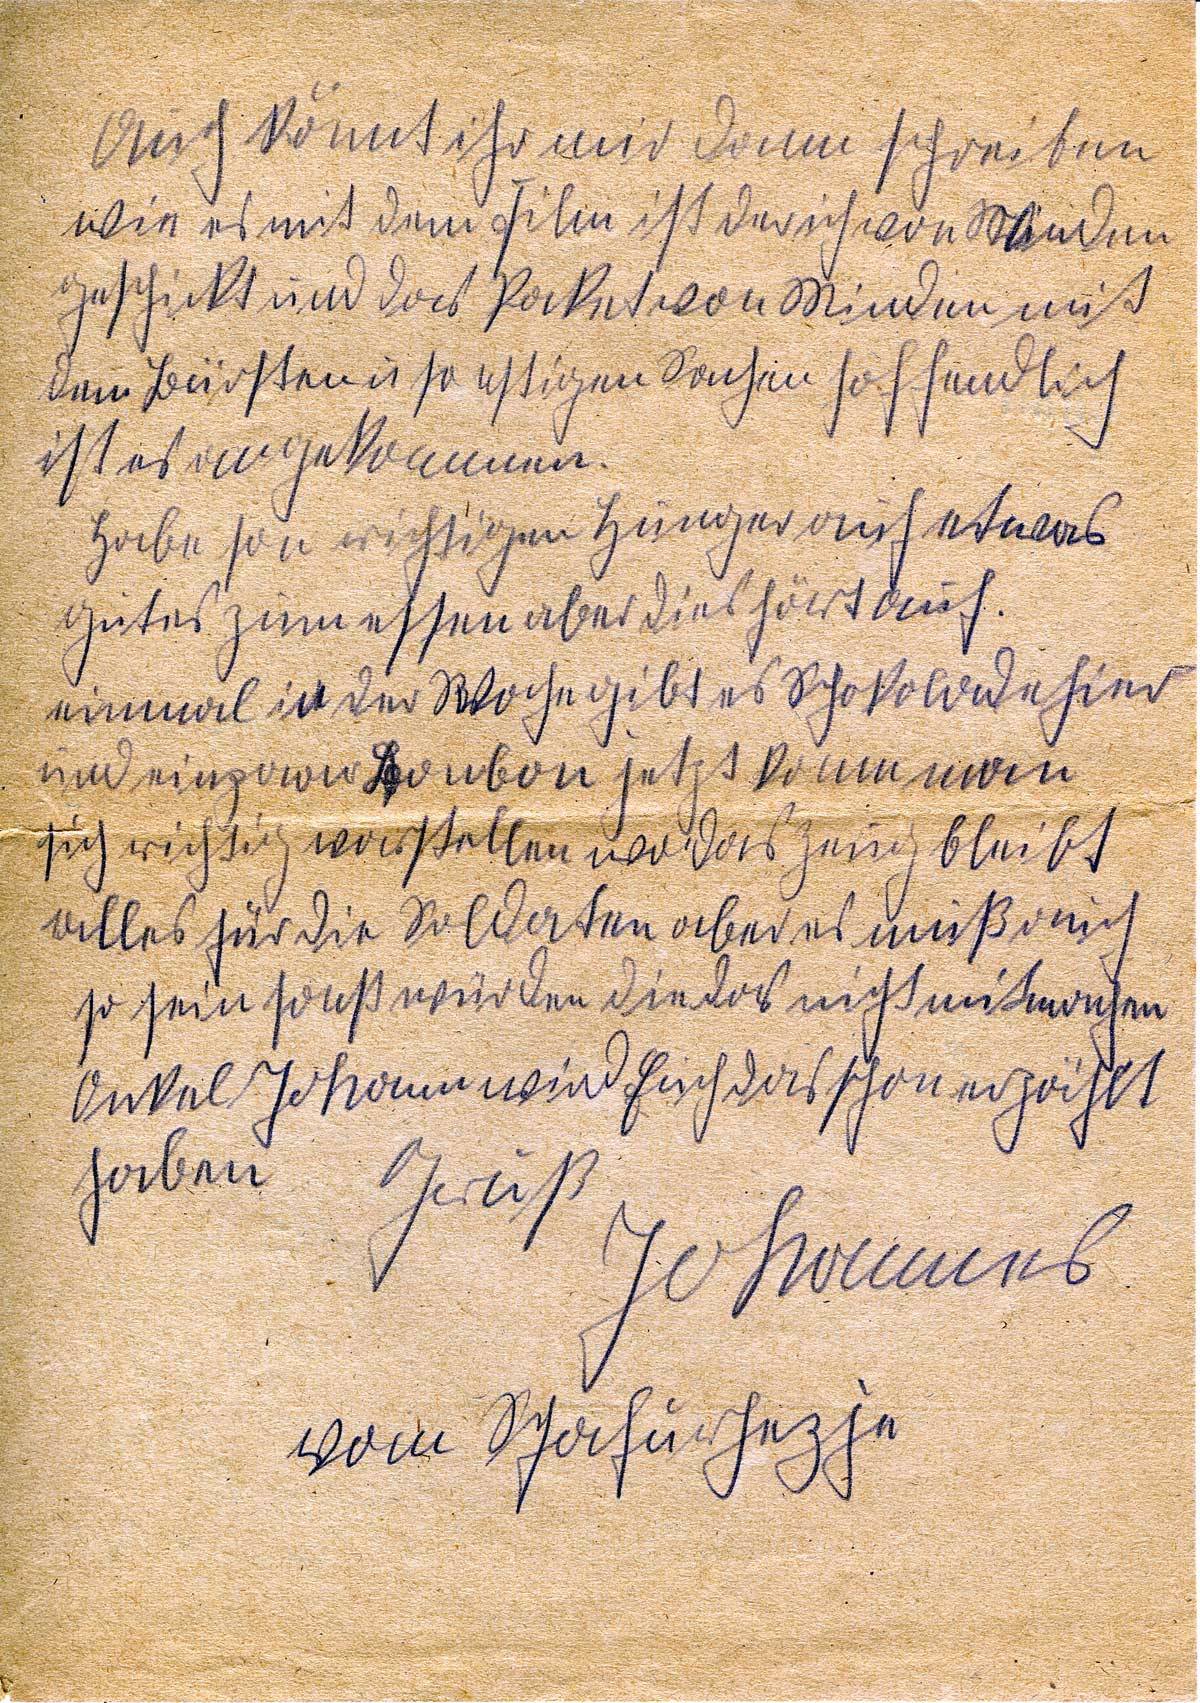 Auch könnt ihr mir dann schreiben
wie es mit dem Film ist der ich von Minden
geschickt und das Paket von Minden mit
dem Bürsten u so
ist es angekommen.
Habe son richtigen Hunger auch etwas
gutes zum essen aber dies hört auf.
einmal in der Woche gibt es Schokolade hier
und ein paar Bonbon jetzt kann man
sich richtig vorstellen wo das Zeug bleibt
alles für die Soldaten aber es muß auch
so sein sonst würden die das nicht mitmachen
Onkel Johann wird Euch das schon erzählt
haben Gruß
Johannes
vom